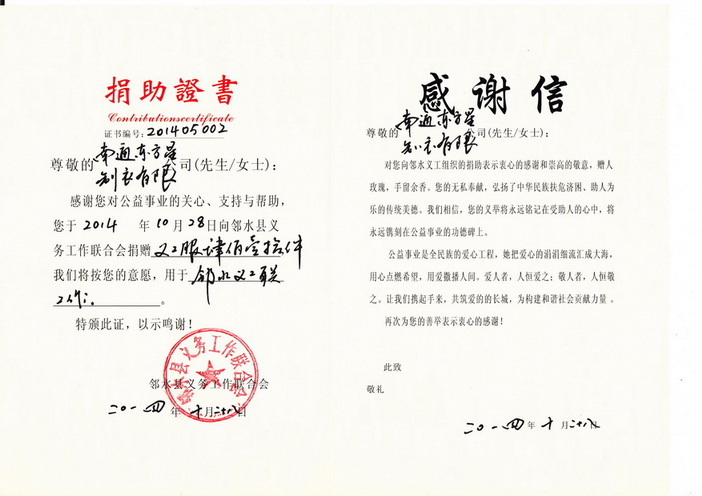 捐助證書
Contributionscertificate
证书编号:201405002
南通东方星
尊敬的制衣有限公司(先生/女士):
感谢您对公益事业的关心、支持与帮助,
您于2014年10月28日向邻水县义
务工作联合会捐赠义工服肆佰壹拾件
我们将按您的意愿,用于邻水义工联
工作。
特颁此证,以示鸣谢!
邻水县义务工作联合会
邻水县义务工作联合会
二〇一四年十月二十八日
感谢信
南通东方星
尊敬的制衣有限公司(先生/女士):
对您向邻水义工组织的捐助表示衷心的感谢和崇高的敬意,赠人
玫瑰,手留余香。您的无私奉献,弘扬了中华民族扶危济困、助人为
乐的传统美德。我们相信,您的义举将永远铭记在受助人的心中,将
永远镌刻在公益事业的功德碑上。
公益事业是全民族的爱心工程,她把爱心的涓涓细流汇成大海,
用心点燃希望,用爱撒播人间。爱人者,人恒爱之;敬人者,人恒敬
之。让我们携起手来,共筑爱的的长城,为构建和谐社会贡献力量。
再次为您的善举表示衷心的感谢!
此致
敬礼
二〇一四年十月二十八日